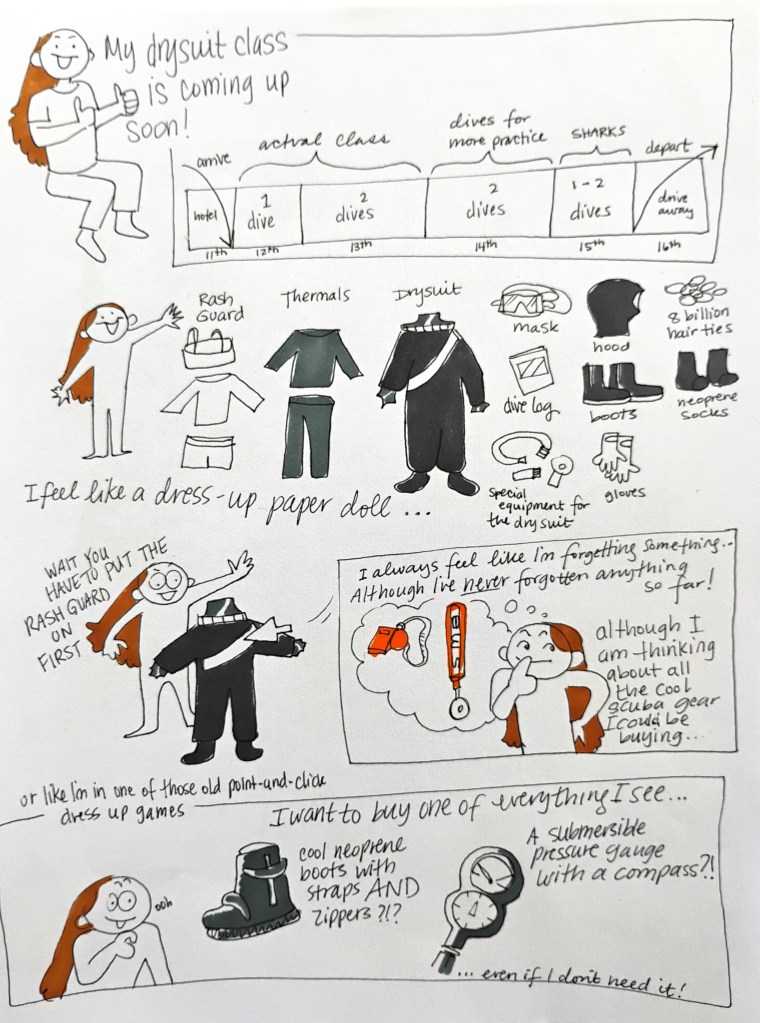 My drysuit class
is coming up
soon!
arrive
actual class
dives for
more practice
SHARKS
depart
hotel
1
dive
2
dives
2
dives
1-2
dives
drive
away
11th
12th
13th
14th
15th
16th
Rash
Guard
Thermals
Drysuit
mask
hood
8 billion
hair ties
dive log
boots
neoprene
socks
special
equipment for
the drysuit
gloves
I feel like a dress-up paper doll ...
WAIT YOU
HAVE TO PUT THE
RASH GUARD
ON
FIRST
I always feel like I'm forgetting something...
Although I've never forgotten anything
so far!
SMB
although I
am thinking
about all
the cool
scuba gear
I could be
buying...
or like I'm in one of those old point-and-click
dress up games
I want to buy one of everything I see...
ooh
cool neoprene
boots with
straps AND
zippers?!?
A submersible
pressure gauge
with a compass?!
... even if I don't need it!